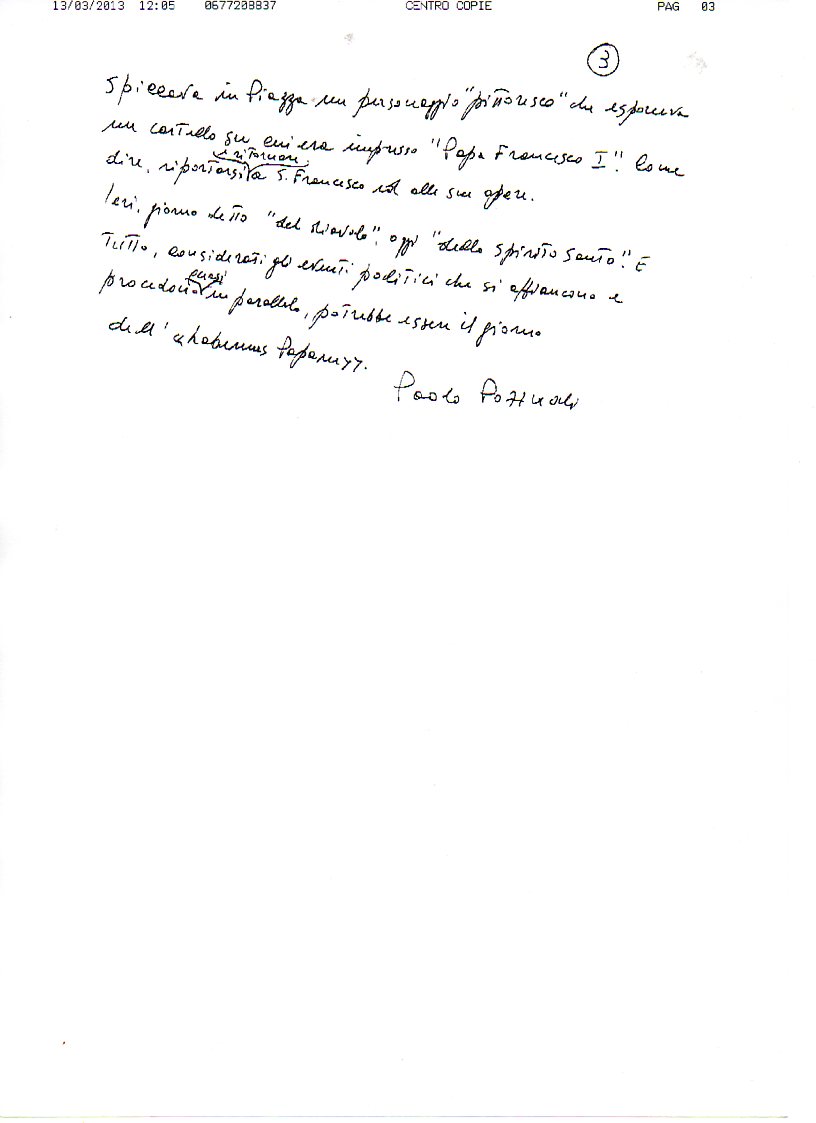 13/03/2013 12:05 0677208837 CENTRO COPIE PAG 03
3
Spiccava in Piazza un personaggio "pittoresco" che esponeva
un cartello su cui era impresso "Papa Francesco I". Come
e ritornare
dire, riportarsi a S. Francesco ed alle sue opere.
Ieri, giorno detto "del diavolo", oggi "dello Spirito Santo". E
Tutto, considerati gli eventi politici che si affiancano e
quasi
procedono in parallelo, potrebbe essere il giorno
dell'"habemus Papam".
Paolo